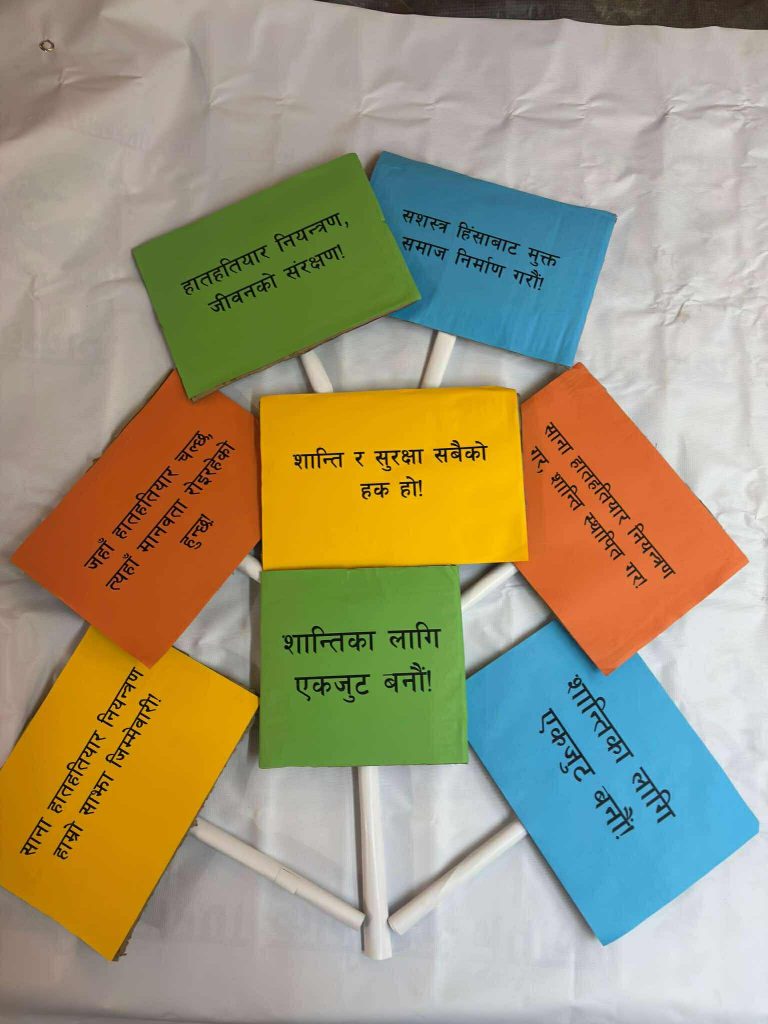 हातहतियार नियन्त्रण,
जीवनको संरक्षण!
सशस्त्र हिंसाबाट मुक्त
समाज निर्माण गरौं!
जहाँ हातहतियार चल्छ,
त्यहाँ मानवता रोइरहेको
हुन्छ!
शान्ति र सुरक्षा सबैको
हक हो!
साना हातहतियार नियन्त्रण
गर, शान्ति स्थापित गर!
साना हातहतियार नियन्त्रण
हाम्रो साझा जिम्मेवारी!
शान्तिका लागि
एकजुट बनौं!
शान्तिका लागि
एकजुट बनौं!